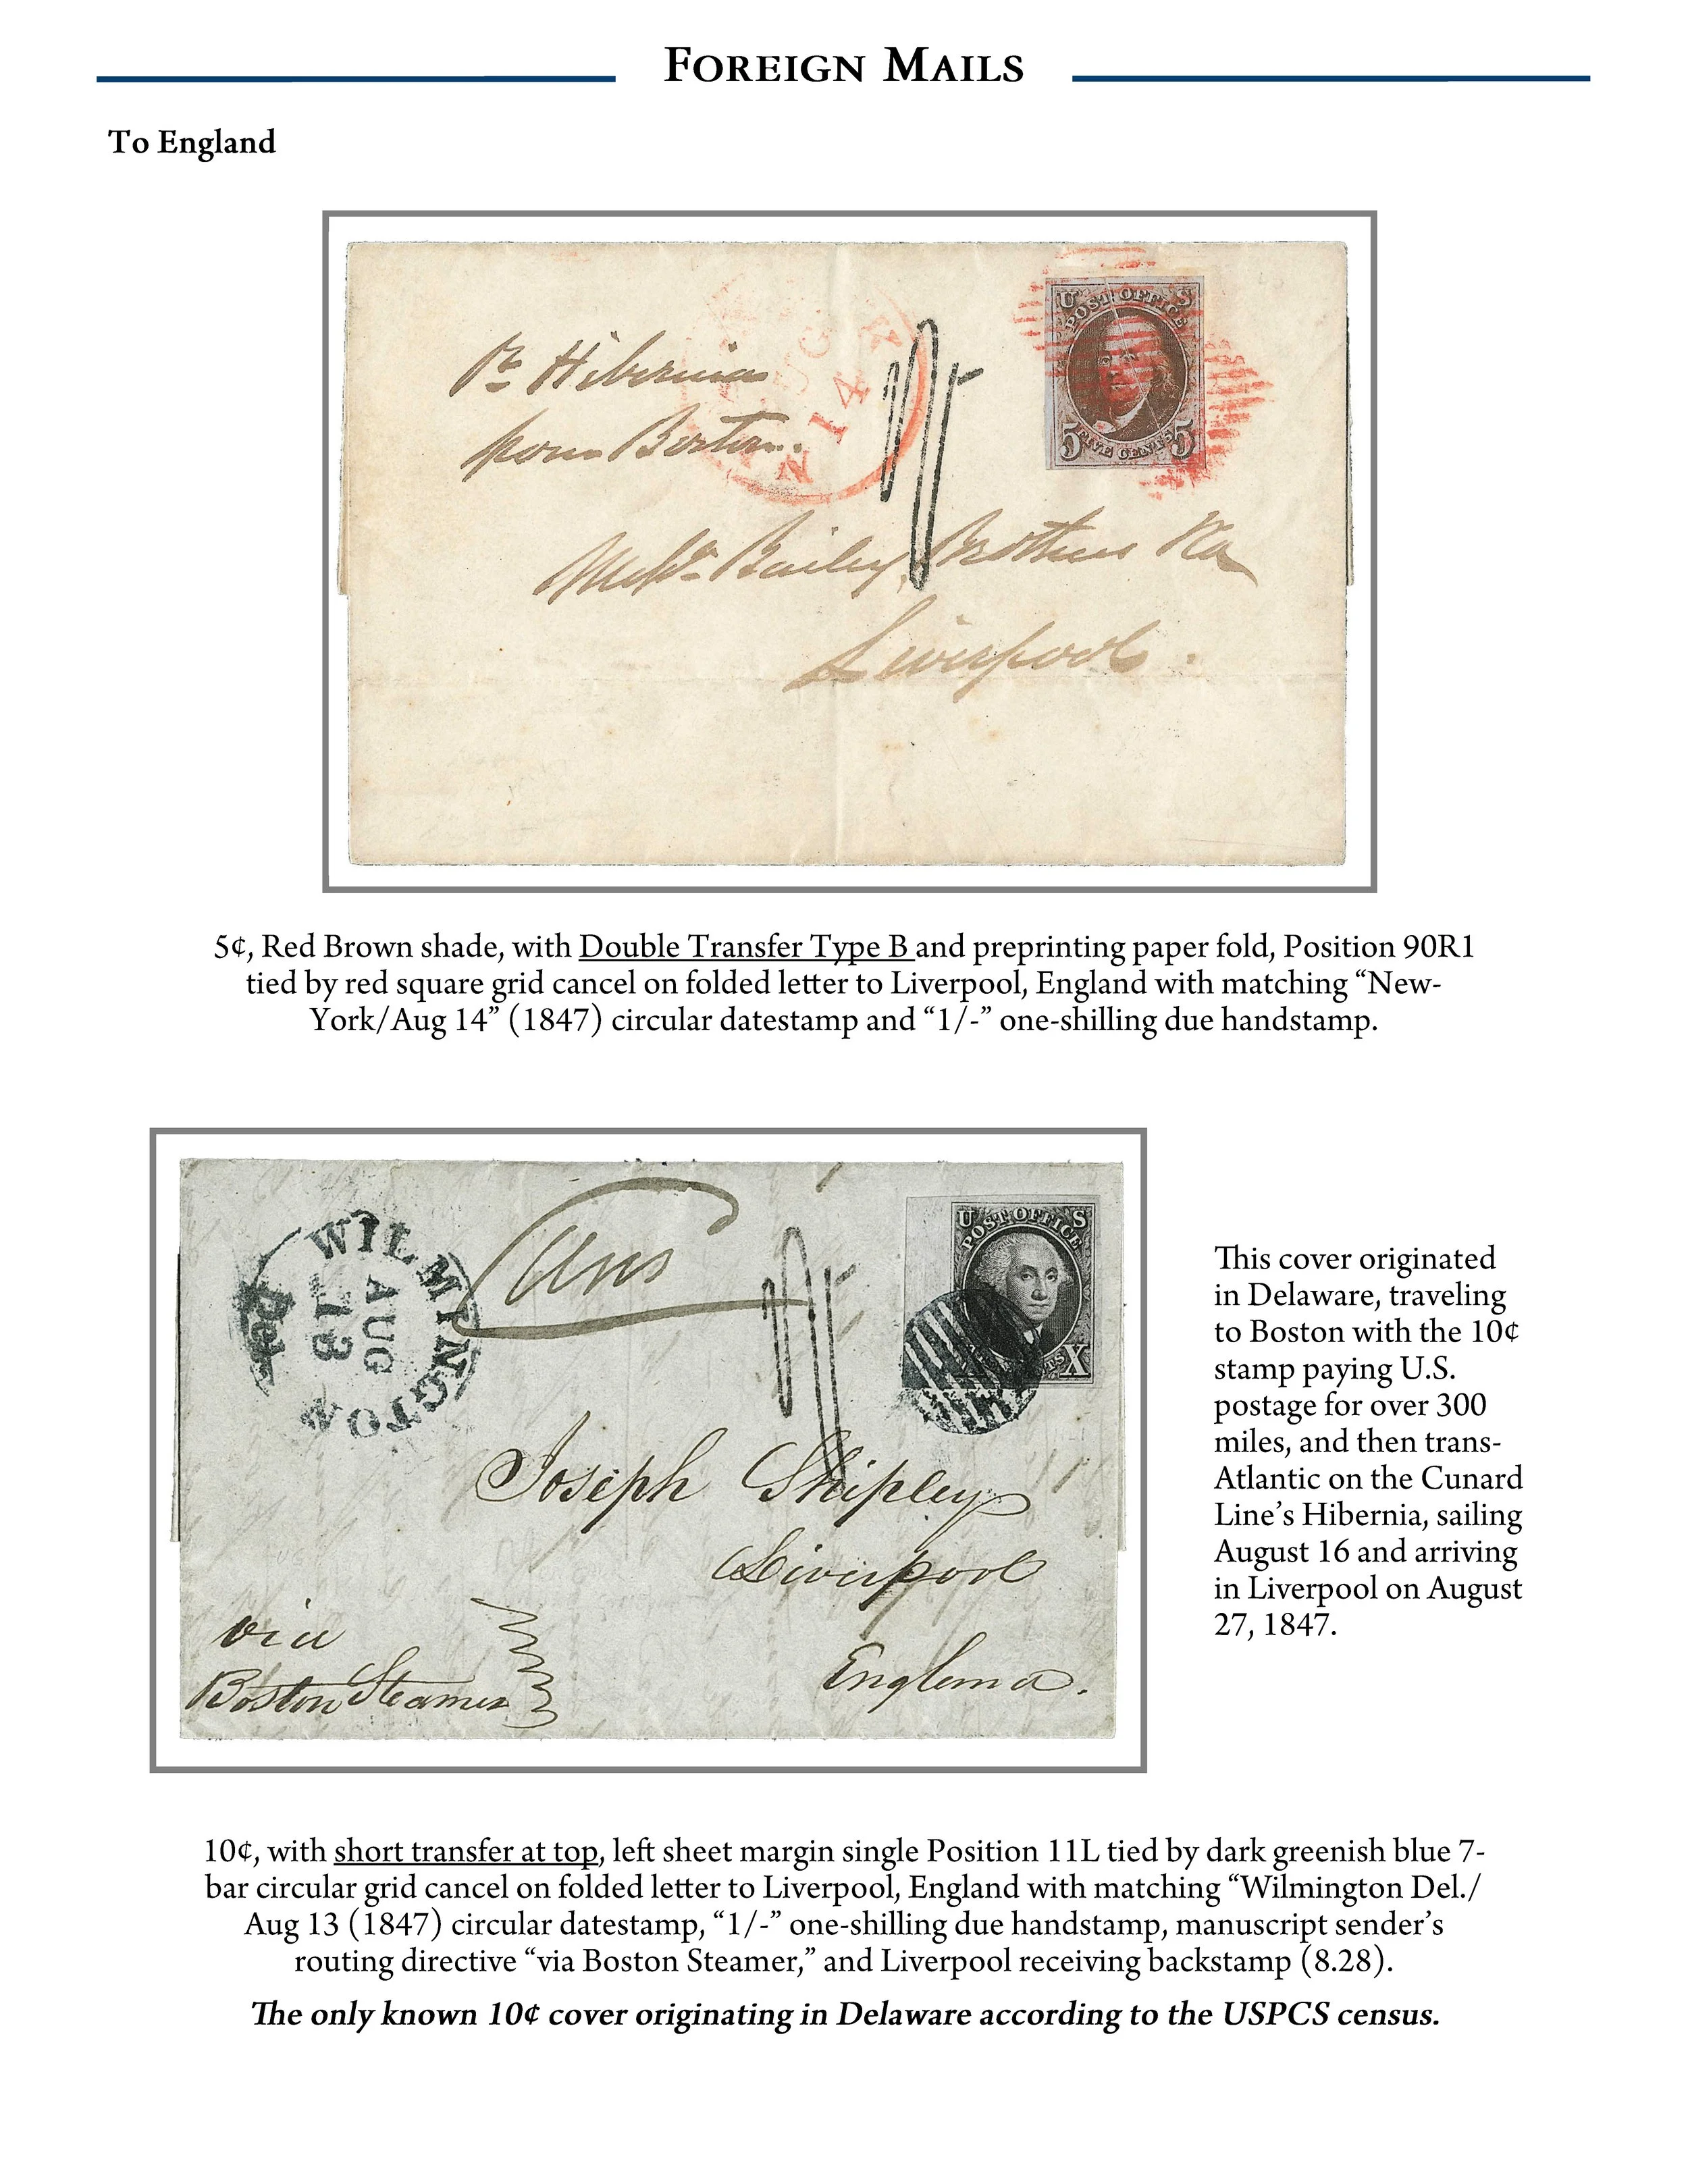 FOREIGN MAILS
To England
Pr Hibernia
from Boston.
NEW YORK
AUG
14
U S
POST OFFICE
5 FIVE CENTS 5
Messrs Bailey Brothers & Co
Liverpool.
5¢, Red Brown shade, with Double Transfer Type B and preprinting paper fold, Position 90R1
tied by red square grid cancel on folded letter to Liverpool, England with matching “New-
York/Aug 14” (1847) circular datestamp and “1/-” one-shilling due handstamp.
WILMINGTON
Del.
AUG
13
U S
POST OFFICE
X
Joseph Shipley
Liverpool
England.
via
Boston Steamer
This cover originated
in Delaware, traveling
to Boston with the 10¢
stamp paying U.S.
postage for over 300
miles, and then trans-
Atlantic on the Cunard
Line’s Hibernia, sailing
August 16 and arriving
in Liverpool on August
27, 1847.
10¢, with short transfer at top, left sheet margin single Position 11L tied by dark greenish blue 7-
bar circular grid cancel on folded letter to Liverpool, England with matching “Wilmington Del./
Aug 13 (1847) circular datestamp, “1/-” one-shilling due handstamp, manuscript sender’s
routing directive “via Boston Steamer,” and Liverpool receiving backstamp (8.28).
The only known 10¢ cover originating in Delaware according to the USPCS census.